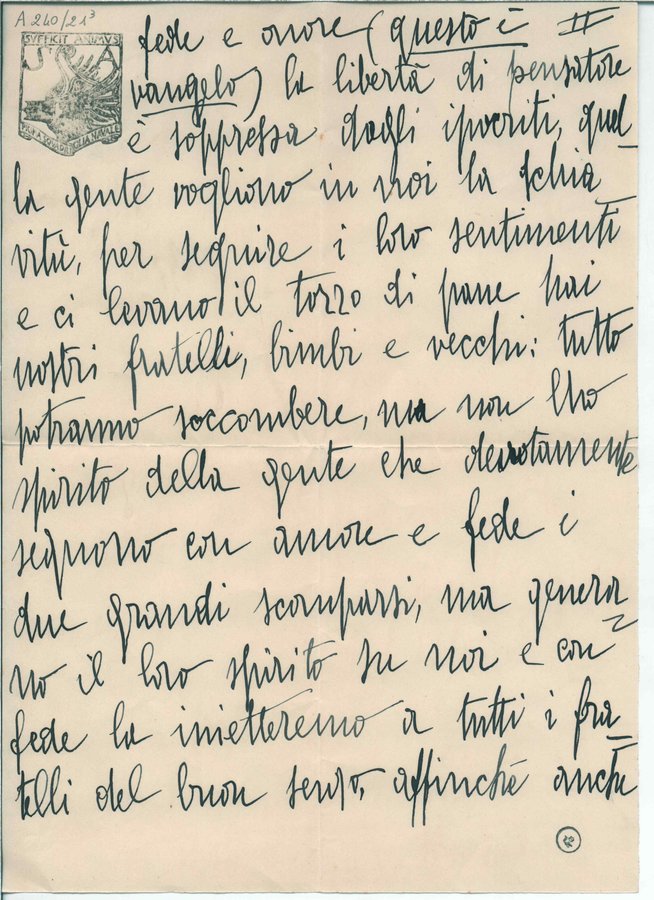 A 240/21³
SVFFICIT ANIMVS
S A
fede e onore (questo è II
vangelo) la libertà di pensatore
è soppressa dagli ipocriti, qual_
la gente vogliono in noi la schia_
vitù, per seguire i loro sentimenti
e ci levano il tozzo di pane hai
nostri fratelli, bimbi e vecchi: tutto
potranno soccombere, ma non lho
spirito della gente che devotamente
seguono con amore e fede i
due grandi scomparsi, ma genera=
no il loro spirito su noi e con
fede la inietteremo a tutti i fra_
telli del buon senso, affinché anche